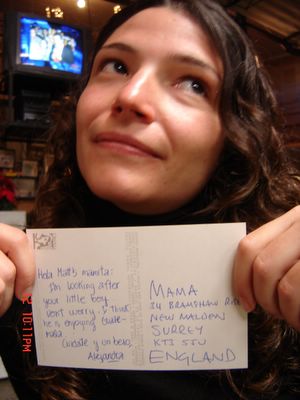 Hola Matt's mamita:
I'm looking after
you little boy
don't worry. I think
he is enjoying Guate-
mala.
Cuidate y un beso,
Alejandra
MAMA
24 BRAMSHAW RISE
NEW MALDEN
SURREY
KT3 5JU
ENGLAND
10:11PM